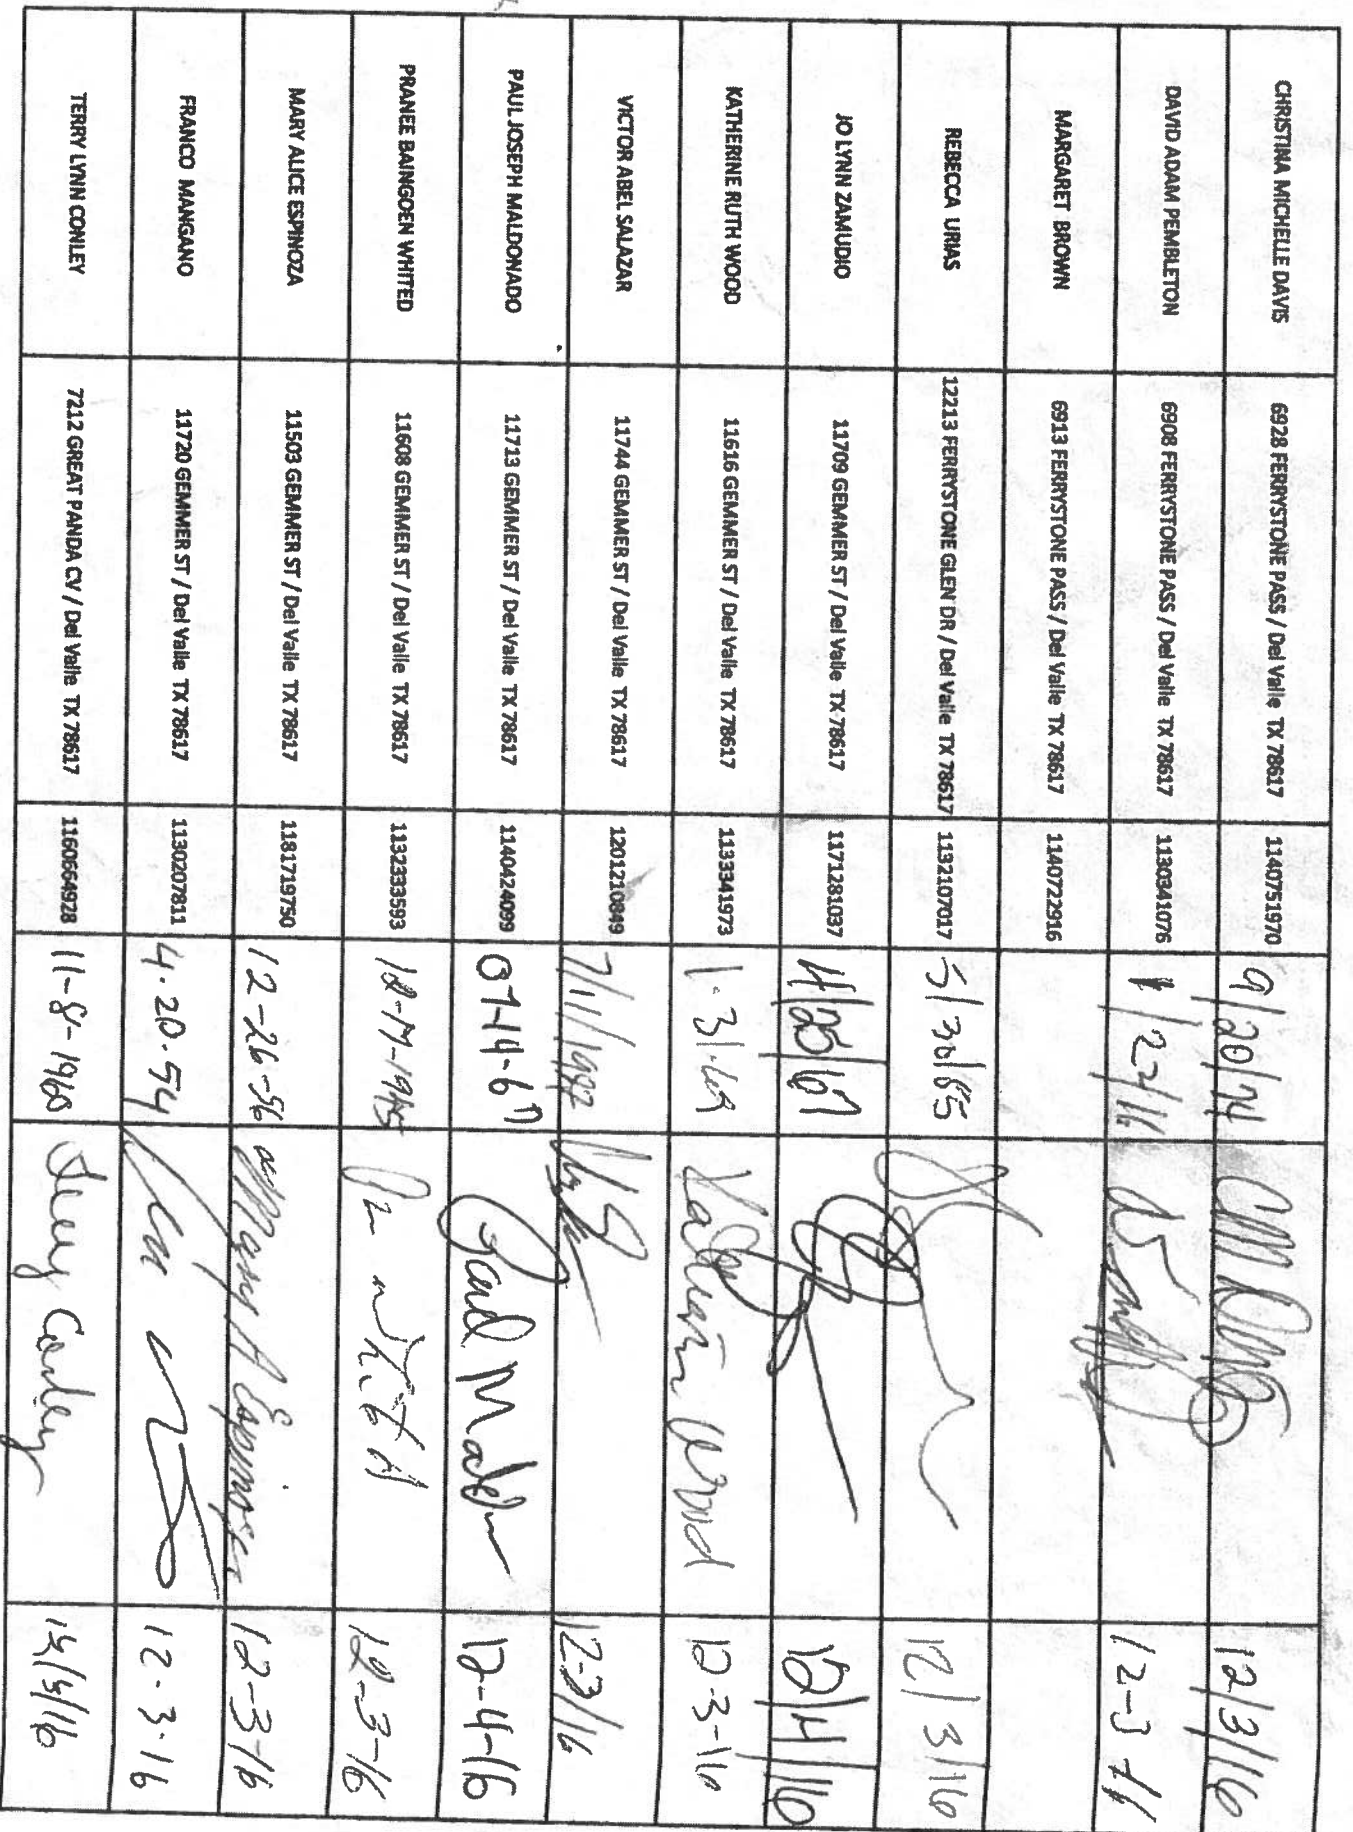 CHRISTINA MICHELLE DAVIS 6928 FERRYSTONE PASS / Del Valle TX 78617 1140751970 9/20/74 12/3/16
DAVID ADAM PEMBLETON 6908 FERRYSTONE PASS / Del Valle TX 78617 1130341076 12-3-16
MARGARET BROWN 6913 FERRYSTONE PASS / Del Valle TX 78617 1140722916
REBECCA URIAS 12213 FERRYSTONE GLEN DR / Del Valle TX 78617 1132107017 5/30/85 12/3/16
JO LYNN ZAMUDIO 11709 GEMMER ST / Del Valle TX 78617 1171281037 4/25/67 12/4/16
KATHERINE RUTH WOOD 11616 GEMMER ST / Del Valle TX 78617 1133341973 1-31-69 Katherine Wood 12-3-16
VICTOR ABEL SALAZAR 11744 GEMMER ST / Del Valle TX 78617 1201210849 7/11/1982 12-3/16
PAUL JOSEPH MALDONADO 11713 GEMMER ST / Del Valle TX 78617 1140424099 07-14-67 Paul 12-4-16
PRANEE BAINGOEN WHITED 11608 GEMMER ST / Del Valle TX 78617 1132333593 12-3-16
MARY ALICE ESPINOZA 11503 GEMMER ST / Del Valle TX 78617 1181719750 12-26-56 Mary A Espinoza 12-3-16
FRANCO MANGANO 11720 GEMMER ST / Del Valle TX 78617 1130207811 4-20-54 12-3-16
TERRY LYNN CONLEY 7212 GREAT PANDA CV / Del Valle TX 78617 1160664928 11-8-1960 Terry Conley 12/3/16